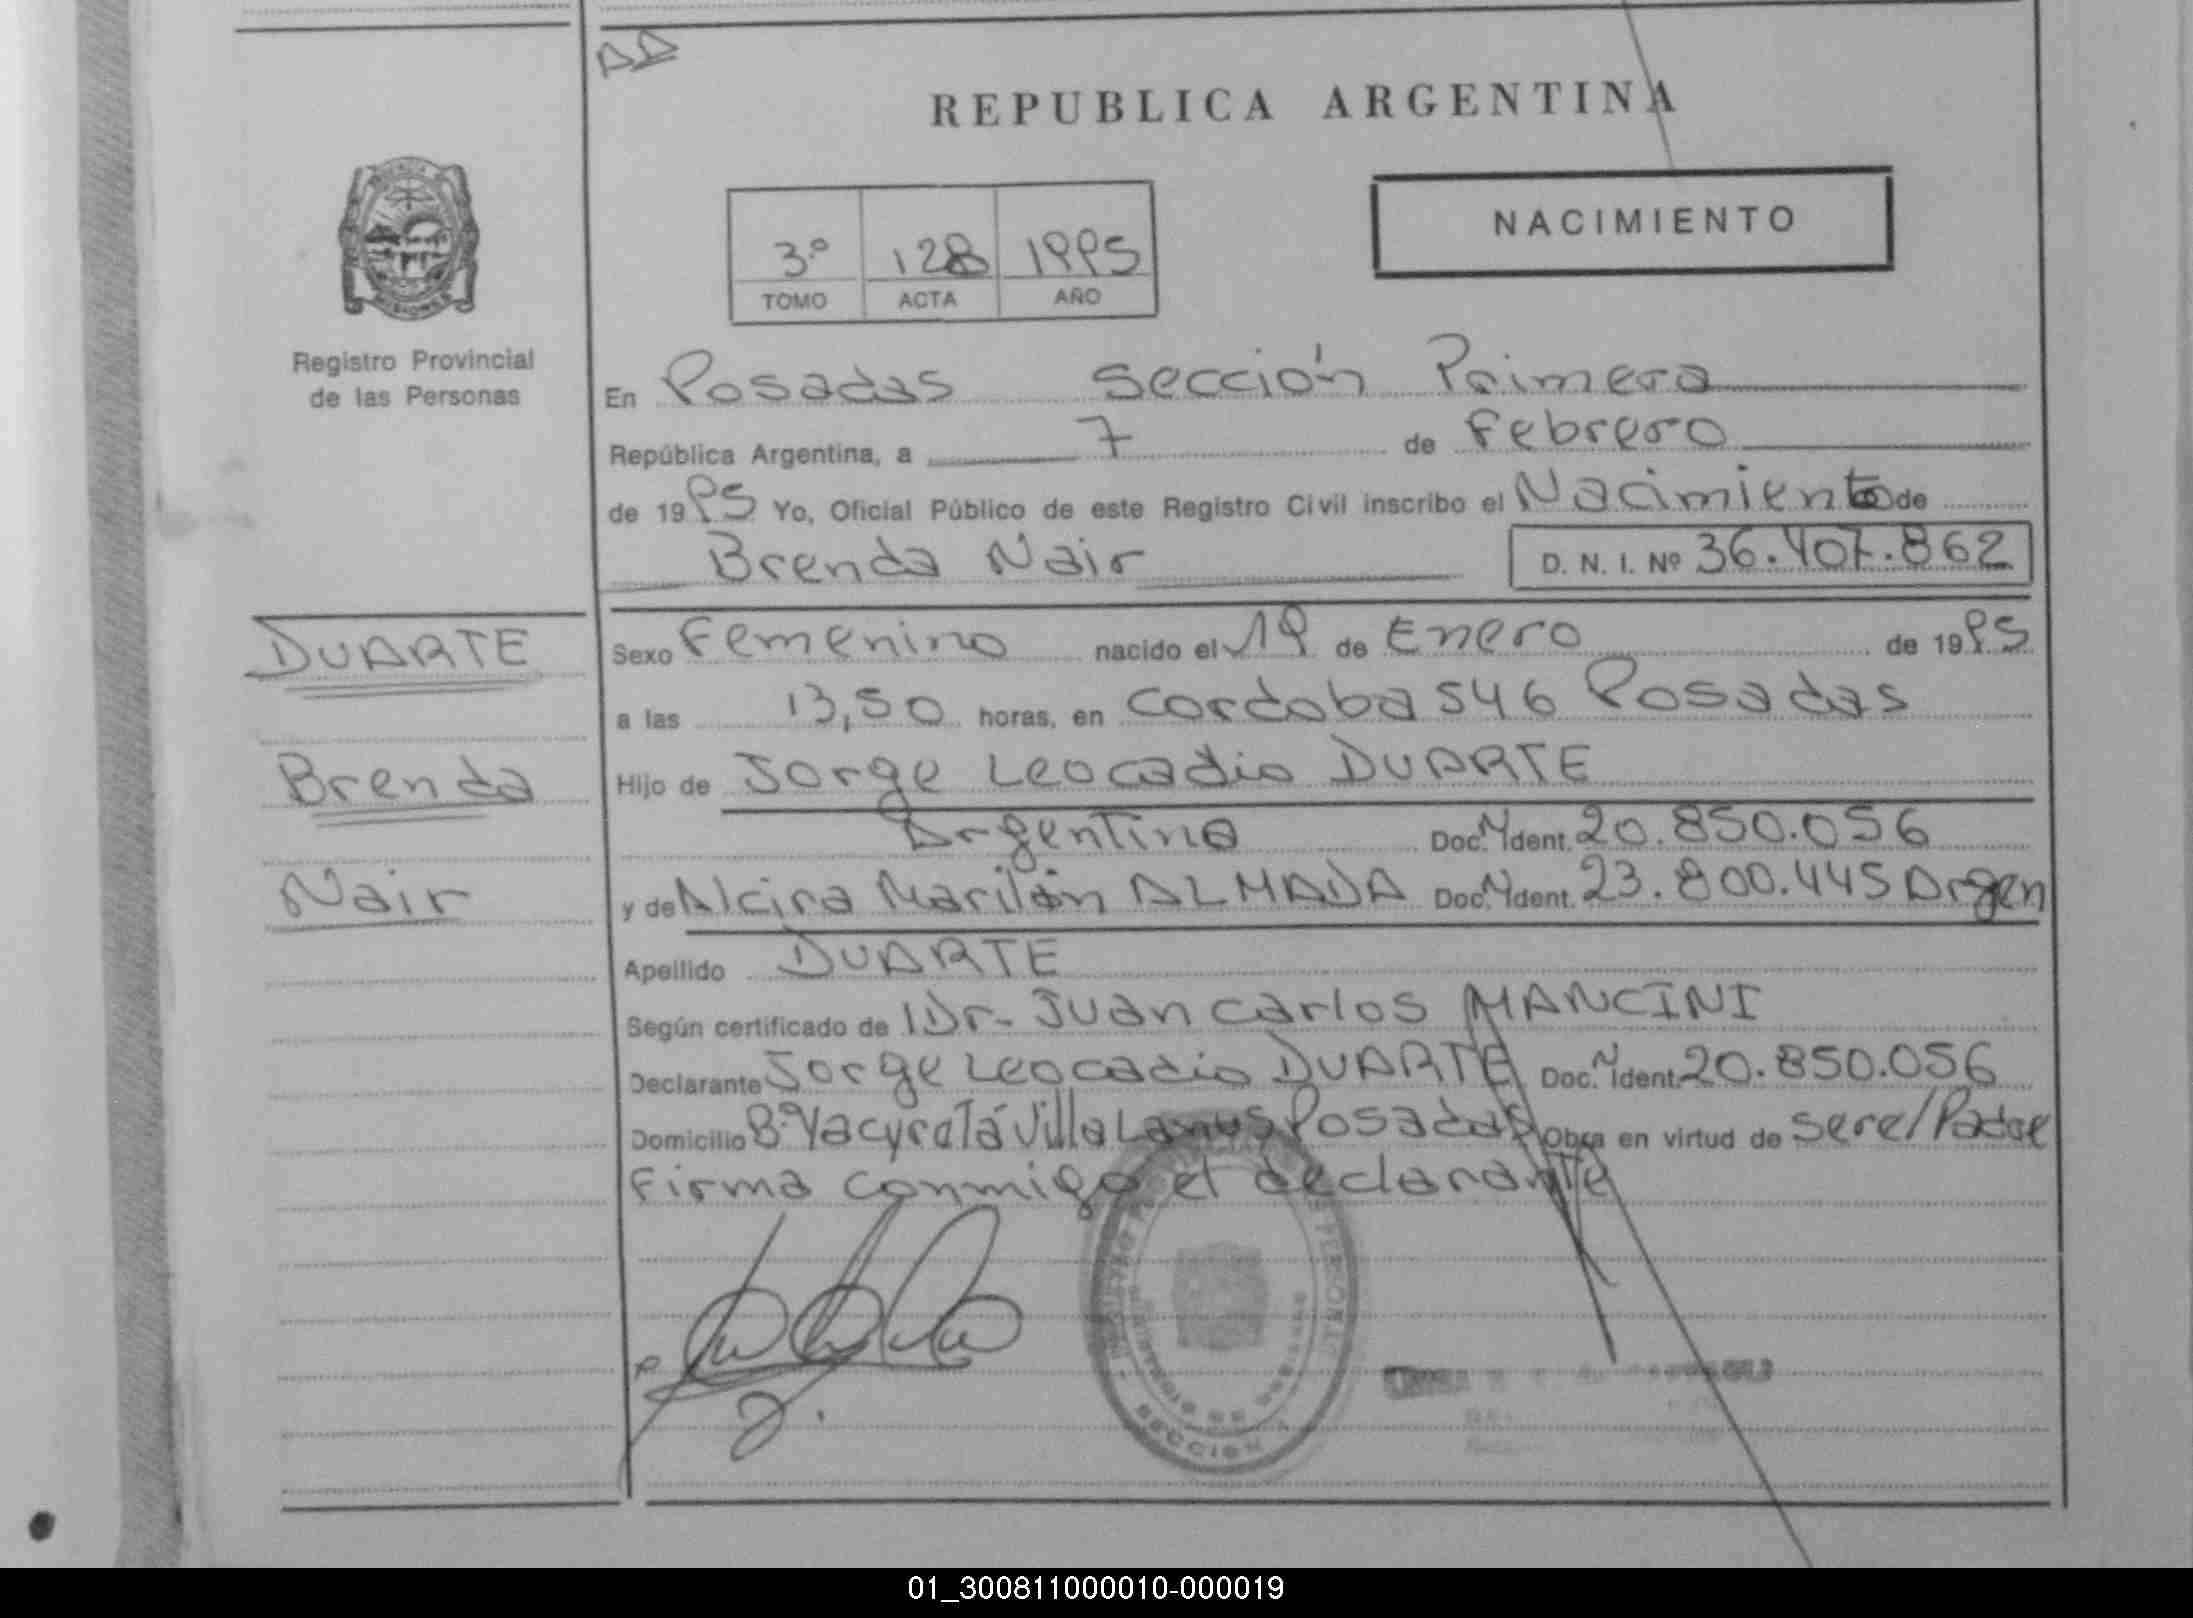 REPUBLICA ARGENTINA
NACIMIENTO
3º 128 1995
TOMO ACTA AÑO
Registro Provincial
de las Personas
En Posadas Sección Primera
República Argentina, a 7 de Febrero
de 1995 Yo, Oficial Público de este Registro Civil inscribo el Nacimiento de
Brenda Nair D. N. I. Nº 36.407.862
DUARTE
Brenda
Nair
Sexo Femenino nacido el 19 de Enero de 1995
a las 13,50 horas, en Cordoba 546 Posadas
Hijo de Jorge Leocadio DUARTE
Argentino Doc. N Ident. 20.850.056
y de Alcira Marilón ALMADA Doc. N Ident. 23.800.445 Argen
Apellido DUARTE
Según certificado de Dr. Juan Carlos MANCINI
Declarante Jorge Leocadio DUARTE Doc. N Ident. 20.850.056
Domicilio Bº Yacyretá Villa Lanus Posadas Obra en virtud de ser el Padre
Firma conmigo el declarante
MINISTERIO DE GOBIERNO
SECCION 1
01_300811000010-000019